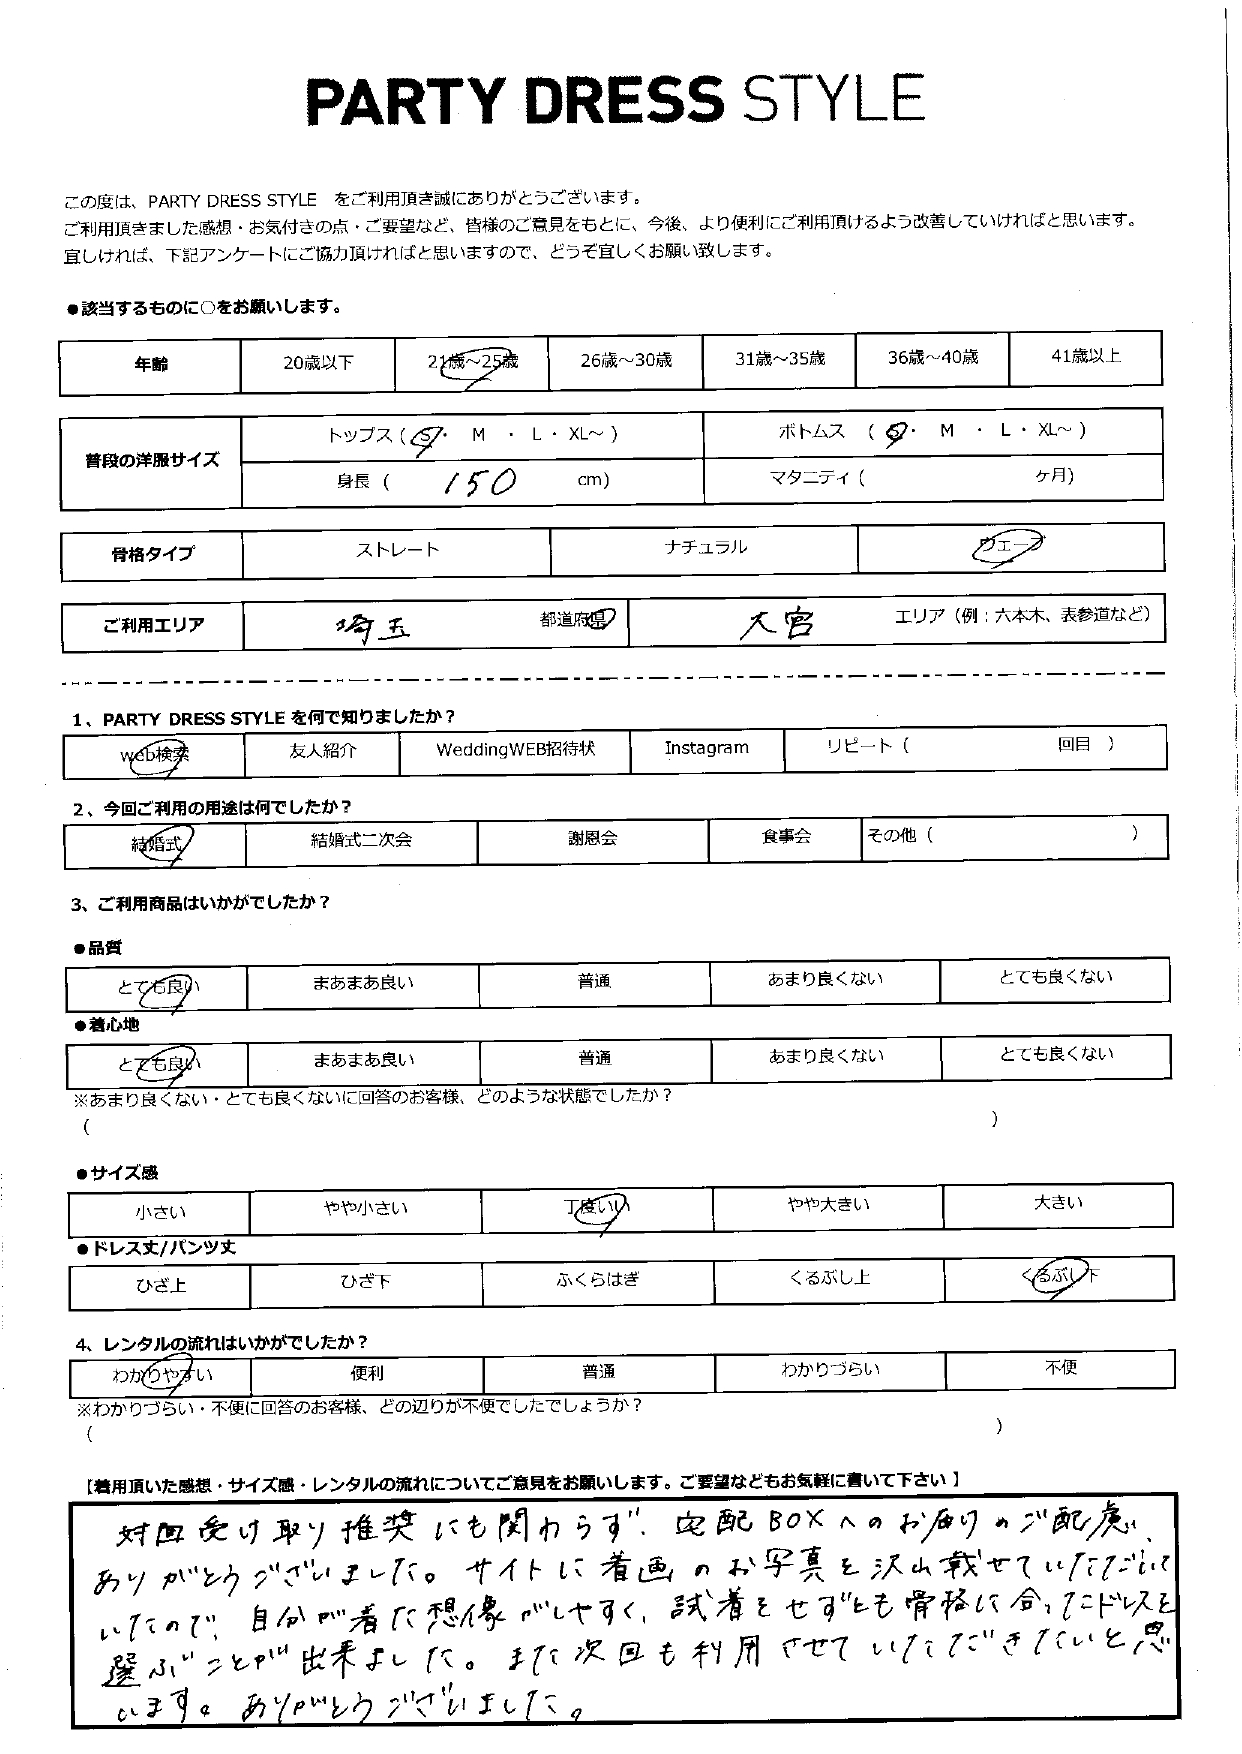 PARTY DRESS STYLE
この度は、PARTY DRESS STYLE をご利用頂き誠にありがとうございます。
ご利用頂きました感想・お気付きの点・ご要望など、皆様のご意見をもとに、今後、より便利にご利用頂けるよう改善していければと思います。
宜しければ、下記アンケートにご協力頂ければと思いますので、どうぞ宜しくお願い致します。
●該当するものに○をお願いします。
年齢 20歳以下 21歳～25歳 26歳～30歳 31歳～35歳 36歳～40歳 41歳以上
普段の洋服サイズ トップス ( S・ M ・ L・ XL～ ) ボトムス ( S・ M ・ L・ XL～ )
身長 ( 150 cm) マタニティ ( ヶ月)
骨格タイプ ストレート ナチュラル ウェーブ
ご利用エリア 埼玉 都道府県 大宮 エリア（例：六本木、表参道など）
1、PARTY DRESS STYLE を何で知りましたか？
web検索 友人紹介 WeddingWEB招待状 Instagram リピート ( 回目 )
2、今回ご利用の用途は何でしたか？
結婚式 結婚式二次会 謝恩会 食事会 その他 ( )
3、ご利用商品はいかがでしたか？
●品質
とても良い まあまあ良い 普通 あまり良くない とても良くない
●着心地
とても良い まあまあ良い 普通 あまり良くない とても良くない
※あまり良くない・とても良くないに回答のお客様、どのような状態でしたか？
( )
●サイズ感
小さい やや小さい 丁度いい やや大きい 大きい
●ドレス丈/パンツ丈
ひざ上 ひざ下 ふくらはぎ くるぶし上 くるぶし下
4、レンタルの流れはいかがでしたか？
わかりやすい 便利 普通 わかりづらい 不便
※わかりづらい・不便に回答のお客様、どの辺りが不便でしたでしょうか？
( )
【着用頂いた感想・サイズ感・レンタルの流れについてご意見をお願いします。ご要望などもお気軽に書いて下さい 】
対面受け取り推奨にも関わらず、宅配BOXへのお届けのご配慮、
ありがとうございました。サイトに着画のお写真を沢山載せていただいて
いたので、自分が着た想像がしやすく、試着をせずとも骨格に合ったドレスを
選ぶことが出来ました。また次回も利用させていただきたいと思
います。ありがとうございました。